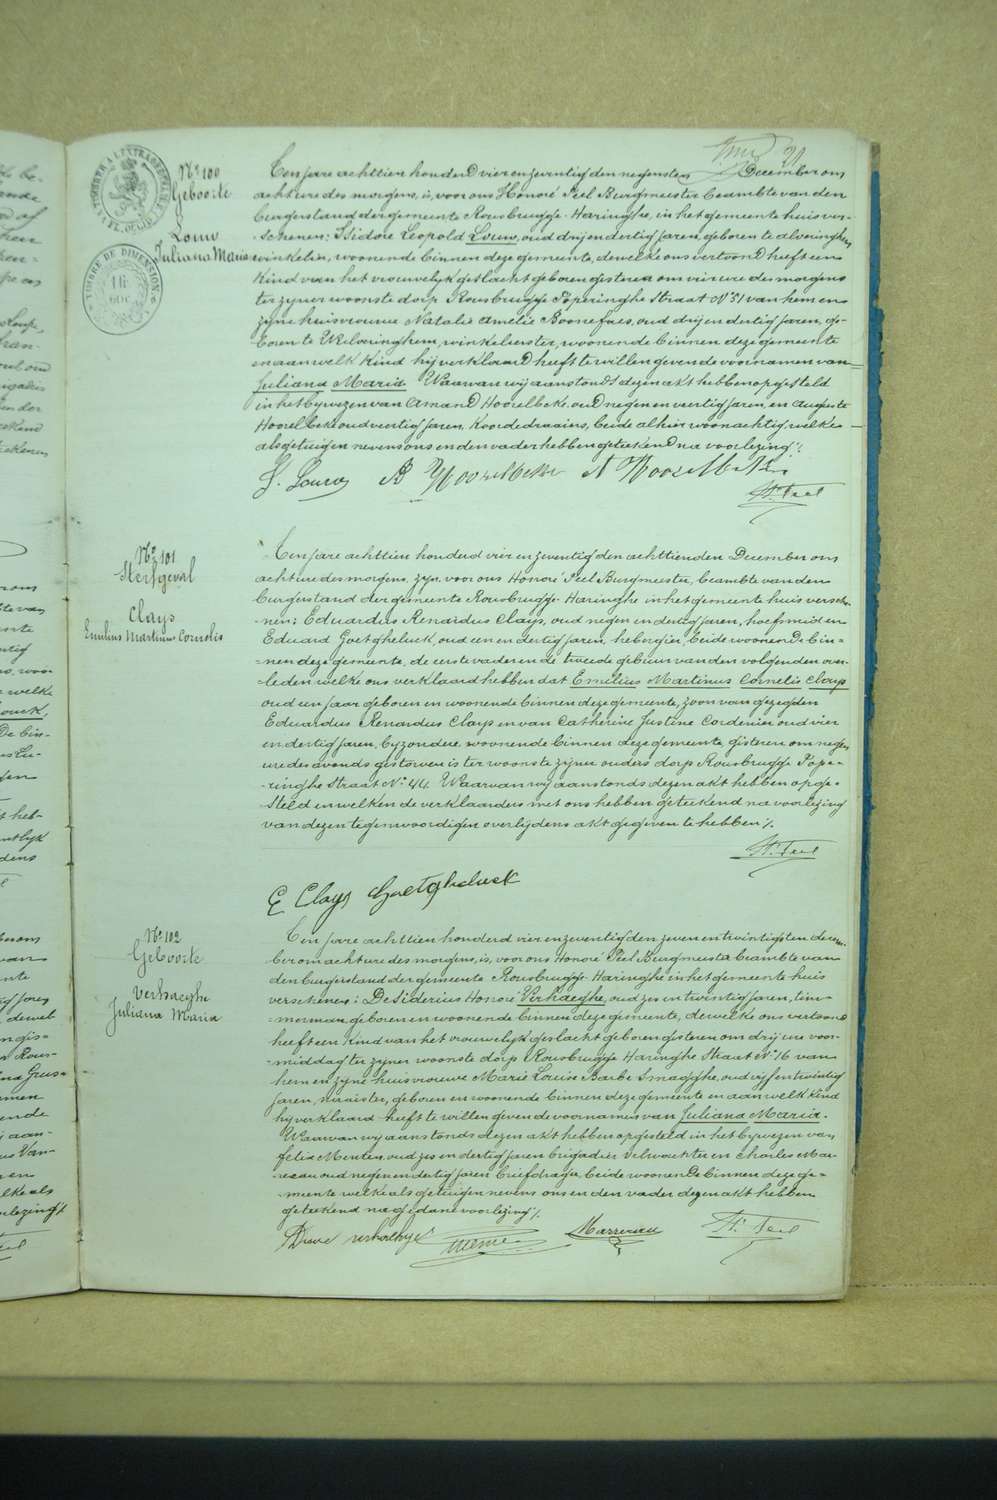 Nº 100
Geboorte
Louw
Juliana Maria
TIMBRE DE DIMENSION
Ten jare achttien honderd vier en zeventig den negensten December om
acht ure des morgens, is, voor ons Honoré Peel Burgmeester beambte van den
burgerstand der gemeente Rousbrugge-Haringhe, in het gemeente huis ver-
-schenen: Isidore Leopold Louw, oud drij en dertig jaren, geboren te alveringhem
winkelier, woonende binnen deze gemeente, dewelke ons vertoond heeft een
kind van het vrouwelijk geslacht geboren gisteren om vier ure des morgens
ter zyner woonste dorp Rousbrugge Poperinghe Straat Nº 51 van hem en
zyne huisvrouwe Natalie Amelie Boonefaes, oud drij en dertig jaren, ge-
boren te Wilveringhem, winkelierster, woonende binnen deze gemeente
en aan welk kind hij verklaard heeft te willen geven de voornamen van
Juliana Maria. Waarvan wij aanstonds dezen akt hebben opgesteld
in het bywezen van Amand Hoorelbeke oud negen en veertig jaren, en Auguste
Hoorelbeke oud veertig jaren, koordedraaiers, beide alhier woonachtig, welke
als getuigen nevens ons en den vader hebben geteekend na voorlezing ./.
H. Peel
Nº 101
Sterfgeval
Clays
Emilius Martinus Cornelis
Ten jare achttien honderd vier en zeventig den achttienden December om
acht ure des morgens, zyn, voor ons Honoré Peel Burgmeester, beambte van den
burgerstand der gemeente Rousbrugge-Haringhe in het gemeente huis versche-
-nen: Eduardus Renardus Clays, oud negen en dertig jaren, hoefsmid en
Eduard Goetgheluck, oud een en dertig jaren, herbergier, beide woonende bin-
-nen deze gemeente, de eerste vader en de tweede gebuur van den volgenden over-
-leden welke ons verklaard hebben dat Emilius Martinus Cornelis Clays
oud een jaar geboren en woonende binnen deze gemeente, zoon van gezegden
Eduardus Renardus Clays en van Catherine Justine Cordenier oud vier
en dertig jaren, byzondere woonende binnen deze gemeente, gisteren om negen
ure des avonds gestorven is ter woonste zijner ouders dorp Rousbrugge Pope-
-ringhe Straat Nº 44. Waarvan wij aanstonds dezen akt hebben opge-
-steld en welken de verklaarders met ons hebben geteekend na voorlezing
van dezen tegenwoordigen overlijdens akt gegeven te hebben ./.
H. Peel
E Clays Goetgheluck
Nº 102
Geboorte
Verhaeghe
Juliana Maria
Ten jare achttien honderd vier en zeventig den zeven en twintigsten decem-
ber om acht ure des morgens, is, voor ons Honoré Peel Burgmeester beambte van
den burgerstand der gemeente Rousbrugge-Haringhe in het gemeente huis
verschenen: Desiderius Honoré Verhaeghe, oud zes en twintig jaren, tim-
-merman, geboren en woonende binnen deze gemeente, dewelke ons vertoond
heeft een kind van het vrouwelijk geslacht geboren gisteren om drij ure voor-
-middag ter zyner woonste dorp Rousbrugge Haringhe Straat Nº 16 van
hem en zyne huisvrouwe Marie Louise Barbe Smagghe, oud vijf en twintig
jaren, naaister, geboren en woonende binnen deze gemeente en aan welk kind
hij verklaard heeft te willen geven de voornamen van Juliana Maria.
Waarvan wij aanstonds dezen akt hebben opgesteld in het bywezen van
Felix Menten, oud zes en dertig jaren brigadier veldwachter en Charles Mar-
-reau oud negen en dertig jaren briefdrager, beide woonende binnen deze ge-
-meente welke als getuigen nevens ons en den vader dezen akt hebben
geteekend na gedane voorlezing ./.
H. Peel